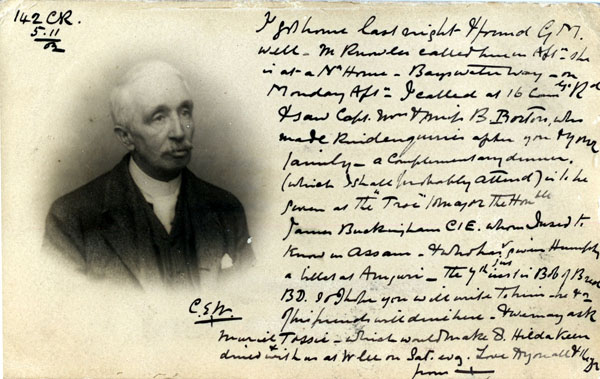 142 CR.
5.11
02
I got home last night & found G.M.
well - M Knowles called here in Aftn she
is at a No Home - Bayswater Way - on
Monday Aftn I called at 16
& saw Capt. Mrs & Miss B. Borton, who
made kind enquiries after you & your
family - a complimentary dinner
(which I shall probably attend) is to be
given at the "Troc" to Major the Honble
James Buckingham CIE. whom I used to
know in Assam - & who has given Humphry
a billet at Amguri - The 7th inst is Bob of
BD. so I hope you will write to him - he & 2
of his friends will dine here - & we may ask
Muriel Tossie - which would make 8. Hilda Keen
dined with us at W Lee on Sat. evg. Love to you all &
from
C.E.W.